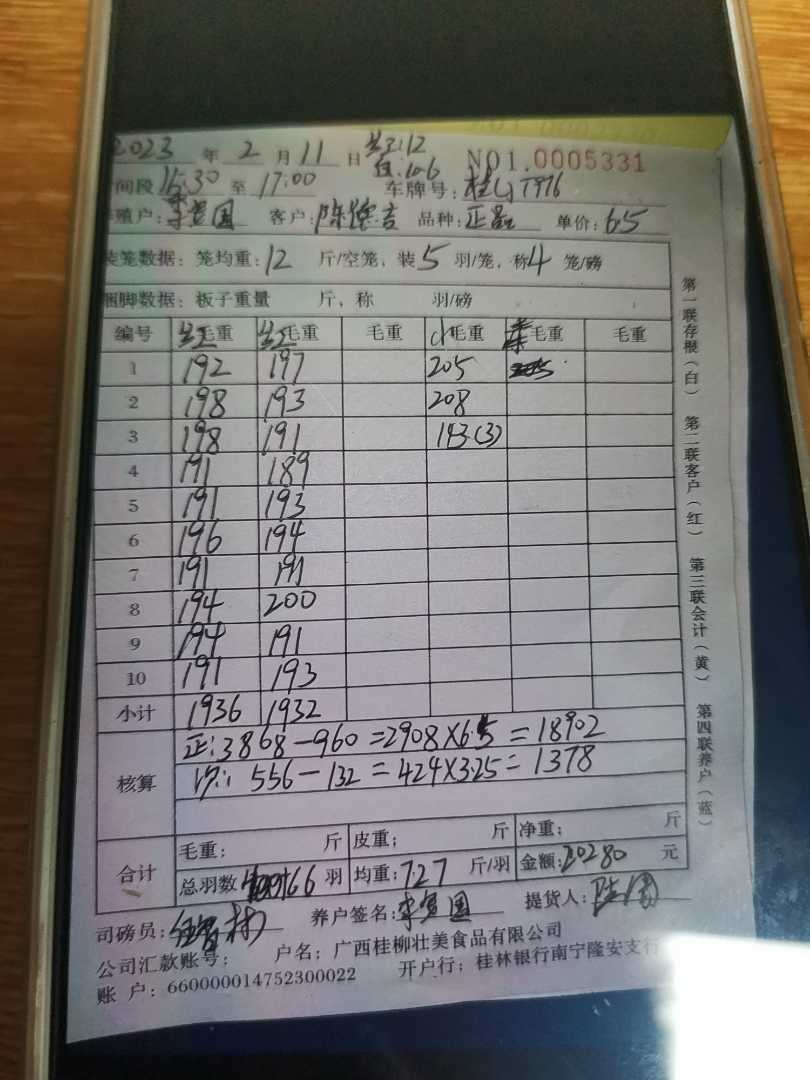 2023 年 2 月 11 日 3:12
NO1.0005331 白:106
间段 15:30 至 17:00 车牌号:桂
殖户: 国 客户: 陈 吉 品种: 正 单价: 6.5
装笼数据: 笼均重: 12 斤/空笼, 装 5 羽/笼, 称 4 笼/磅
捆脚数据: 板子重量 斤, 称 羽/磅
编号 毛重 毛重 毛重 小毛重 毛重 毛重
1 192 197 205
2 198 193 208
3 198 191 143(3)
4 191 189
5 191 193
6 196 194
7 191 191
8 194 200
9 194 191
10 191 193
小计 1936 1932
核算 正:3868-960=2908×6.5=18902
556-132=424×3.25=1378
合计 毛重; 斤 皮重; 斤 净重; 斤
总羽数 66 羽 均重: 7.27 斤/羽 金额: 20280 元
司磅员: 养户签名: 国 提货人:
公司汇款账号: 户名: 广西桂柳壮美食品有限公司
账 户: 660000014752300022 开户行: 桂林银行南宁隆安支行
第一联存根(白) 第二联客户(红) 第三联会计(黄) 第四联养户(蓝)